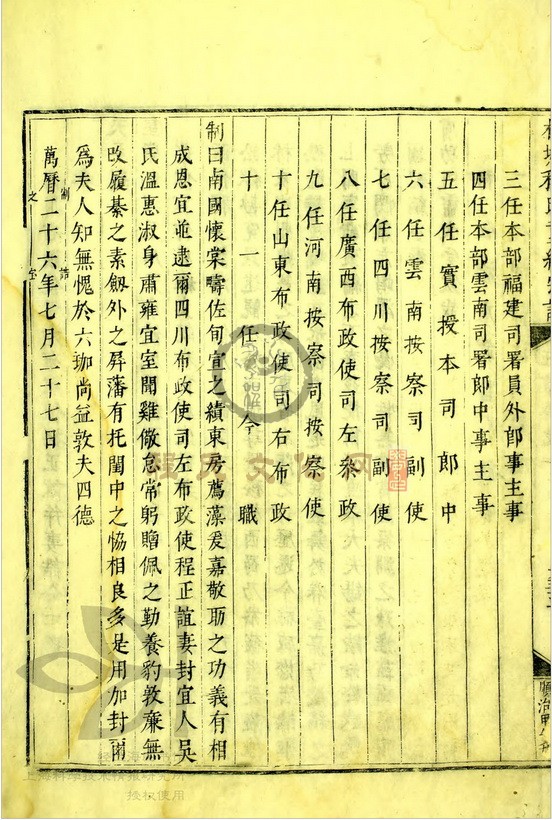 三任本部福建司署員外郎事主事
四任本部雲南司署郎中事主事
五任實授本司郎中
六任雲南按察司副使
七任四川按察司副使
八任廣西布政使司左叅政
九任河南按察司按察使
十任山東布政使司右布政
十一任今職
制曰南國懷棠疇佐旬宣之績東房薦藻爰嘉敬聏之功義有相
成恩宜並逮爾四川布政使司左布政使程正誼妻封宜人吳
氏溫惠淑身肅雍宜室聞雞儆怠常躬贈佩之勤養豹敦廉無
改履綦之素劒外之屏藩有托閨中之恊相良多是用加封爾
為夫人知無愧於六珈尚益敦夫四德
制誥
萬曆二十六年七月二十七日
之
授权使用